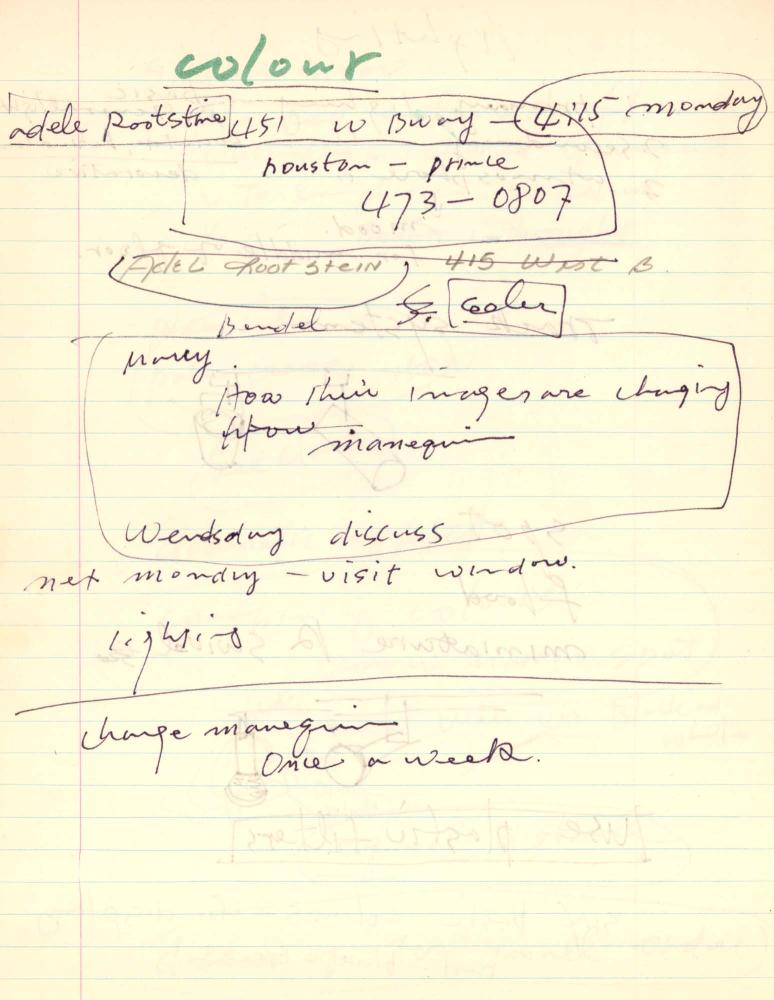 colour
adele Rootstine 451 W Bway - 4:15 monday
houston - prince
473-0807
Adel Rootstein 415 West B.
Bendel
How their images are changing
How manequin
Wendsday discuss
nex monday - visit window.
lighting
change manequin
Once a week.